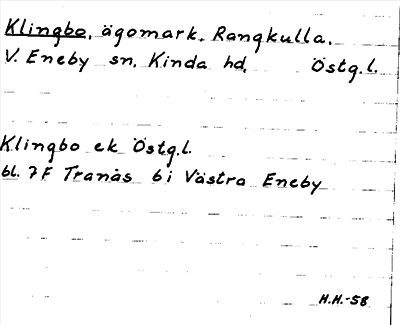 Klingbo, ägomark. Rangkulla.
V. Eneby sn. Kinda hd. Östg.l.
Klingbo ek Östg.l.
bl. 7F Tranås 6i Västra Eneby
H.H.-58